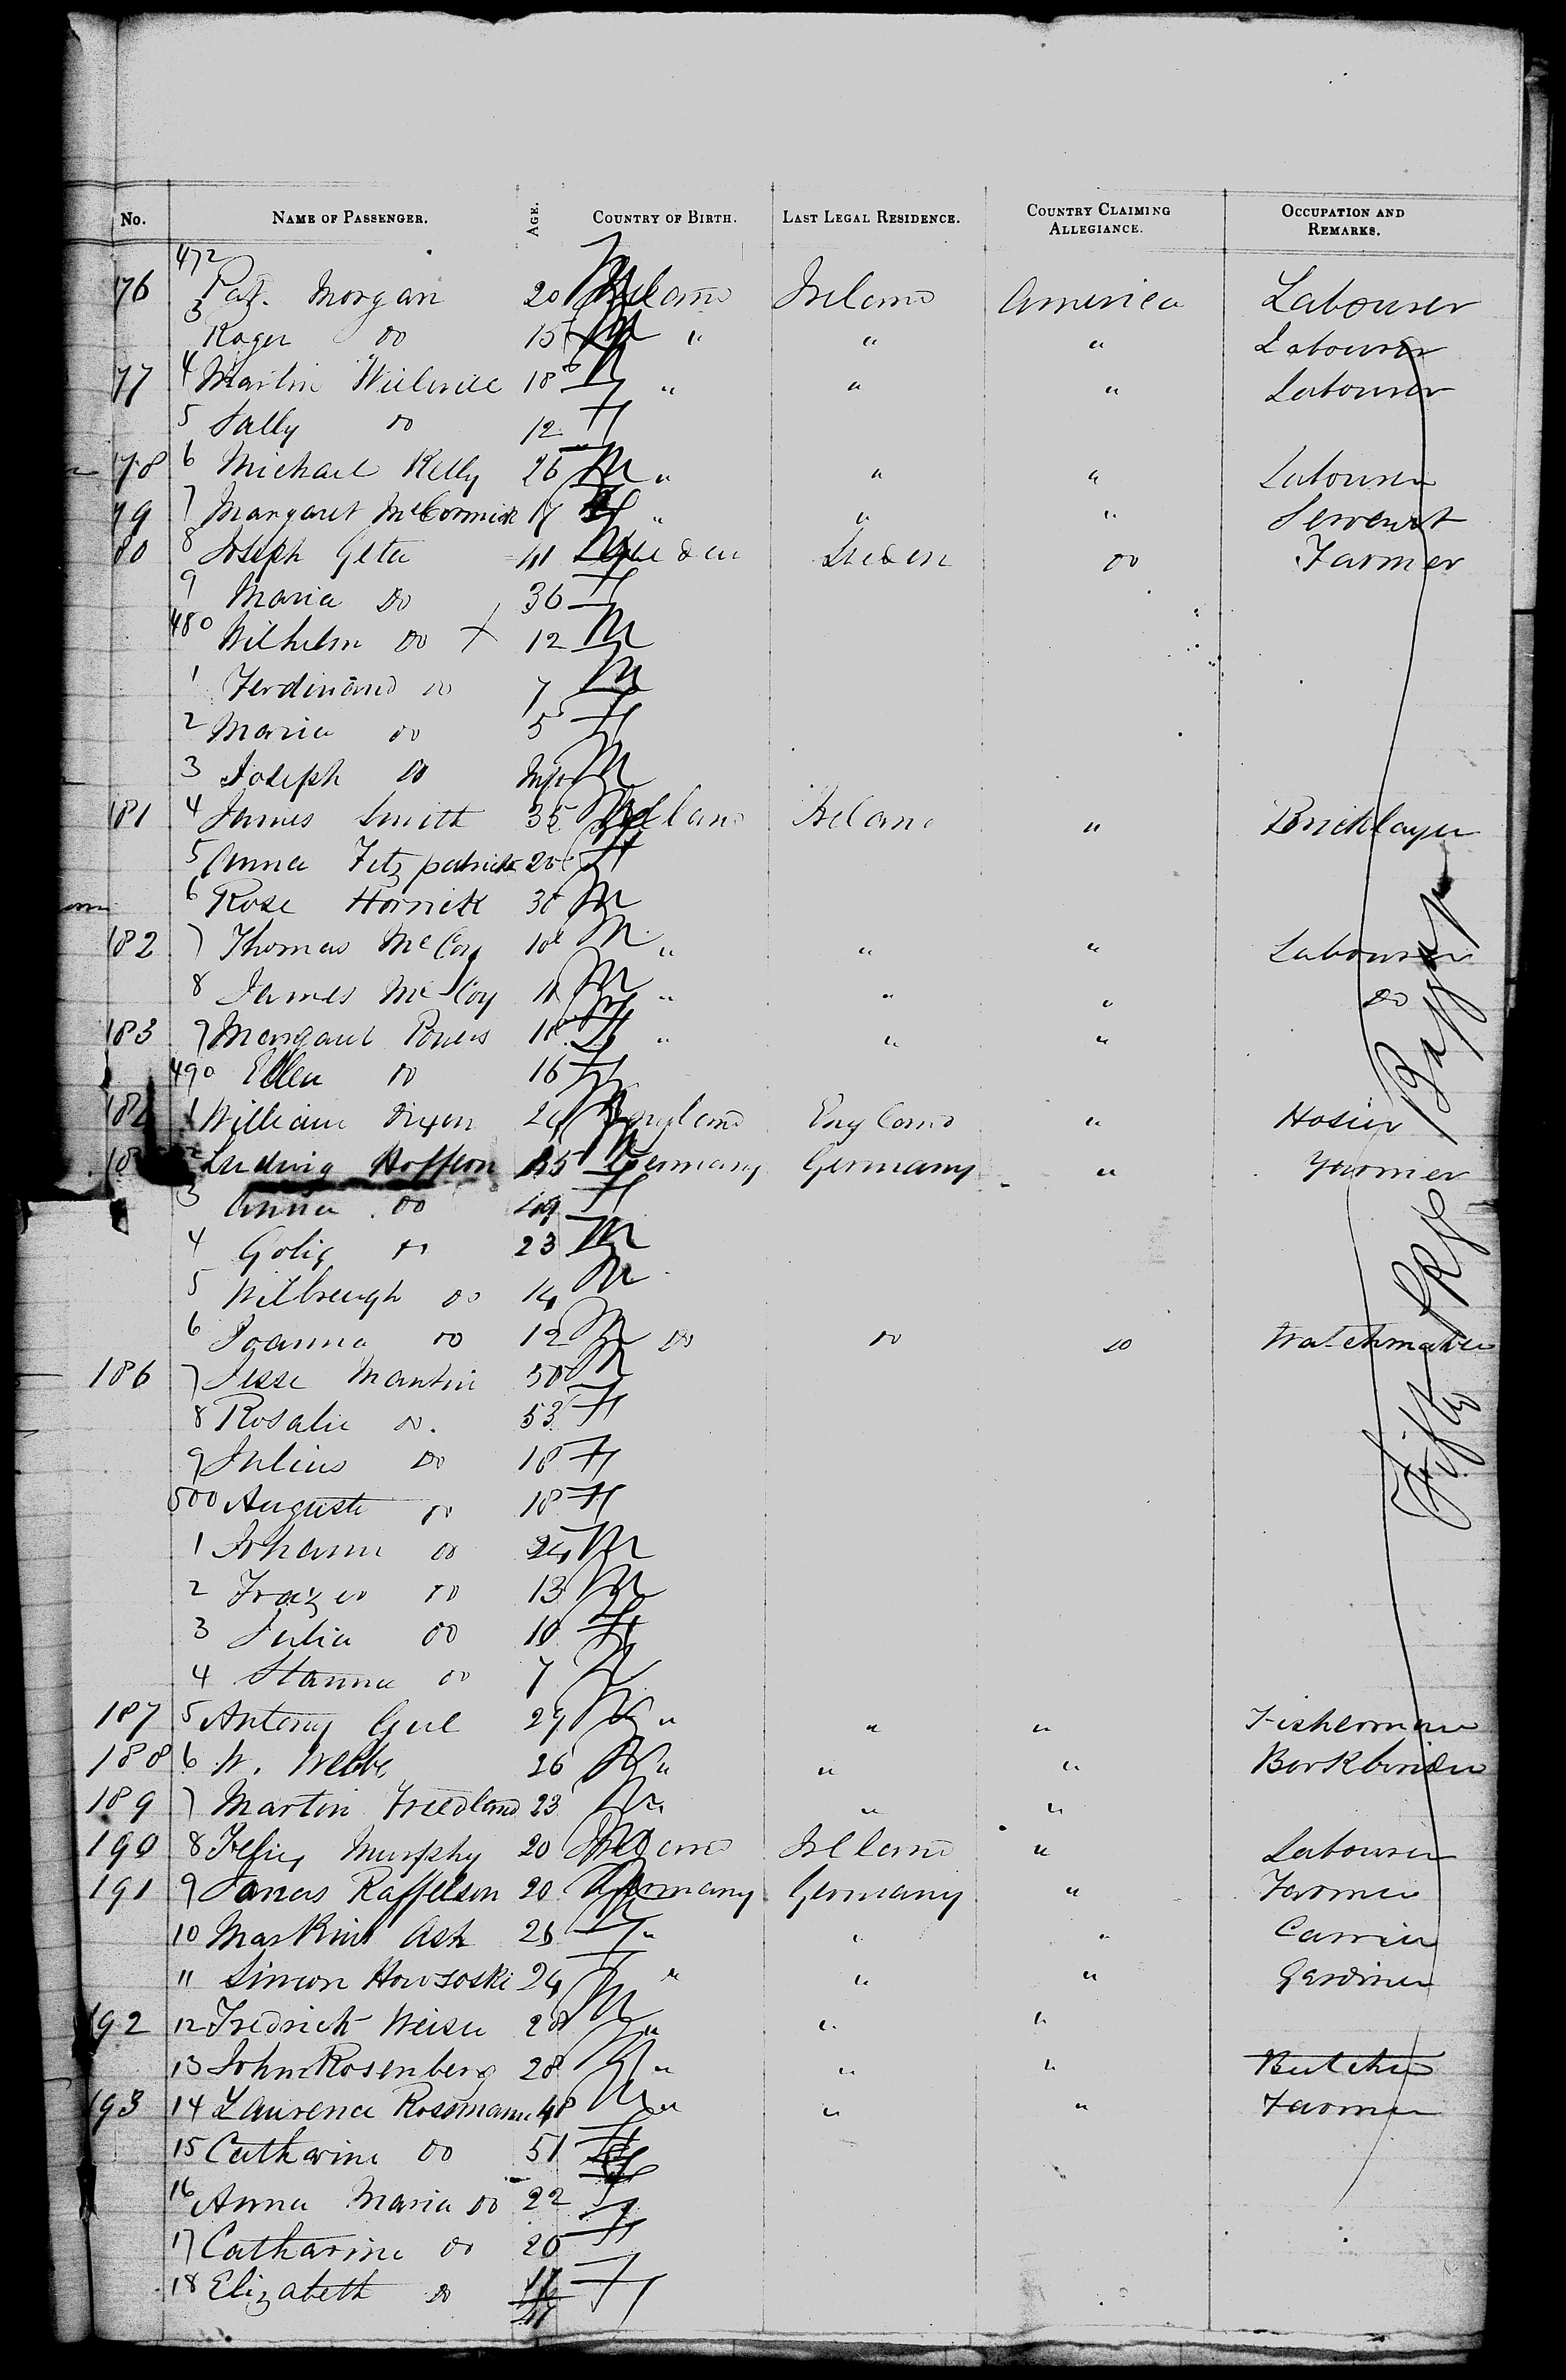 No. NAME OF PASSENGER. AGE. COUNTRY OF BIRTH. LAST LEGAL RESIDENCE. COUNTRY CLAIMING ALLEGIANCE. OCCUPATION AND REMARKS.
472
76 Pat. Morgan 20 M Ireland Ireland America Labourer
3 Roger do 15 M " " " Labourer
77 4 Martin 18 M " " " Labourer
5 Sally do 12 F
78 6 Michael Kelly 26 M " " " Labourer
79 7 Margaret McCormick 17 F " " " Servent
80 8 Joseph 41 M do Farmer
9 Maria do 36 F
480 Wilhelm do X 12 M
1 Ferdinand do 7 M
2 Maria do 5 F
3 Joseph do Inft M
181 4 James Smith 35 M Ireland Ireland " Bricklayer
5 Anna Fitzpatrick 20 F
6 Rose Hornick 30 M
182 7 Thomas McCoy 18 M " " " Labourer
8 James McCoy M " " " do
183 9 Margaret Powers 18 F " " "
490 Ellen do 16 F
1 William Dixon M England England " Hosier
Ludwig 55 M Germany Germany " Farmer
3 Anna do 49 F
4 do 23 M
5 do 14 M
6 Joanna do 12 M do do do Watchmaker
186 7 Jesse 50 M
8 Rosalie do. 53 F
9 Julius do 18 F
500 Auguste do 18 F
1 Johann do 24 M
2 do 13 M
3 Julia do 10 F
4 do 7
187 5 Antony 29 M " " " Fisherman
188 6 W. Webbe 26 M " " " Bookbinder
189 7 Martin Freedland 23 M " " "
190 8 Felix Murphy 20 M Ireland Ireland " Labourer
191 9 Raffelson 20 M Germany Germany " Farmer
10 Ash 26 F " " " Carrier
11 Simon 24 F " " " Gardiner
192 12 Fredrich Weise 28 M " " "
13 John Rosenberg 28 M " " " Butcher
193 14 Laurence Rossmann 48 M " " " Farmer
15 Catharine do 51 F
16 Anna Maria do 22 F
17 Catharine do 20 F
18 Elizabeth do 17 F
Fifty